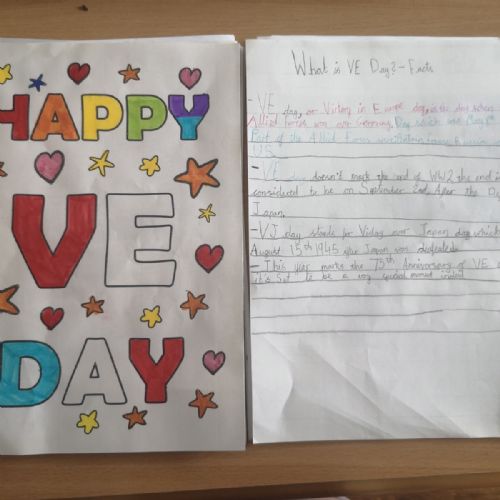 HAPPY
VE
DAY
What is VE Day? - Facts
- VE day, or Victory in Europe day, is the day
Allied forces won over Germany. Day
Part of the Allied forces
US
- VE doesn't mark the end of WW2 the end is
considered to be on September 2nd, After the
Japan.
- VJ day stands for Victory over Japan day, which
August 15th 1945 Japan was defeated.
- This year marks the 75th Anniversary of VE
to be a very special moment indeed